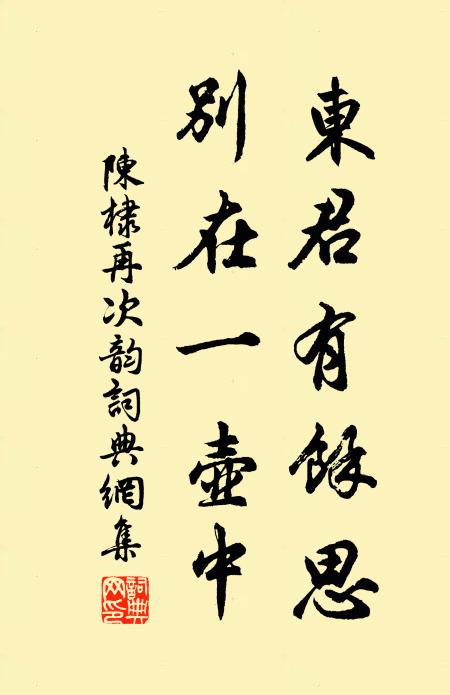 東君有餘思
別在一壺中
陳棣再次韵詞典網集
詞典网印